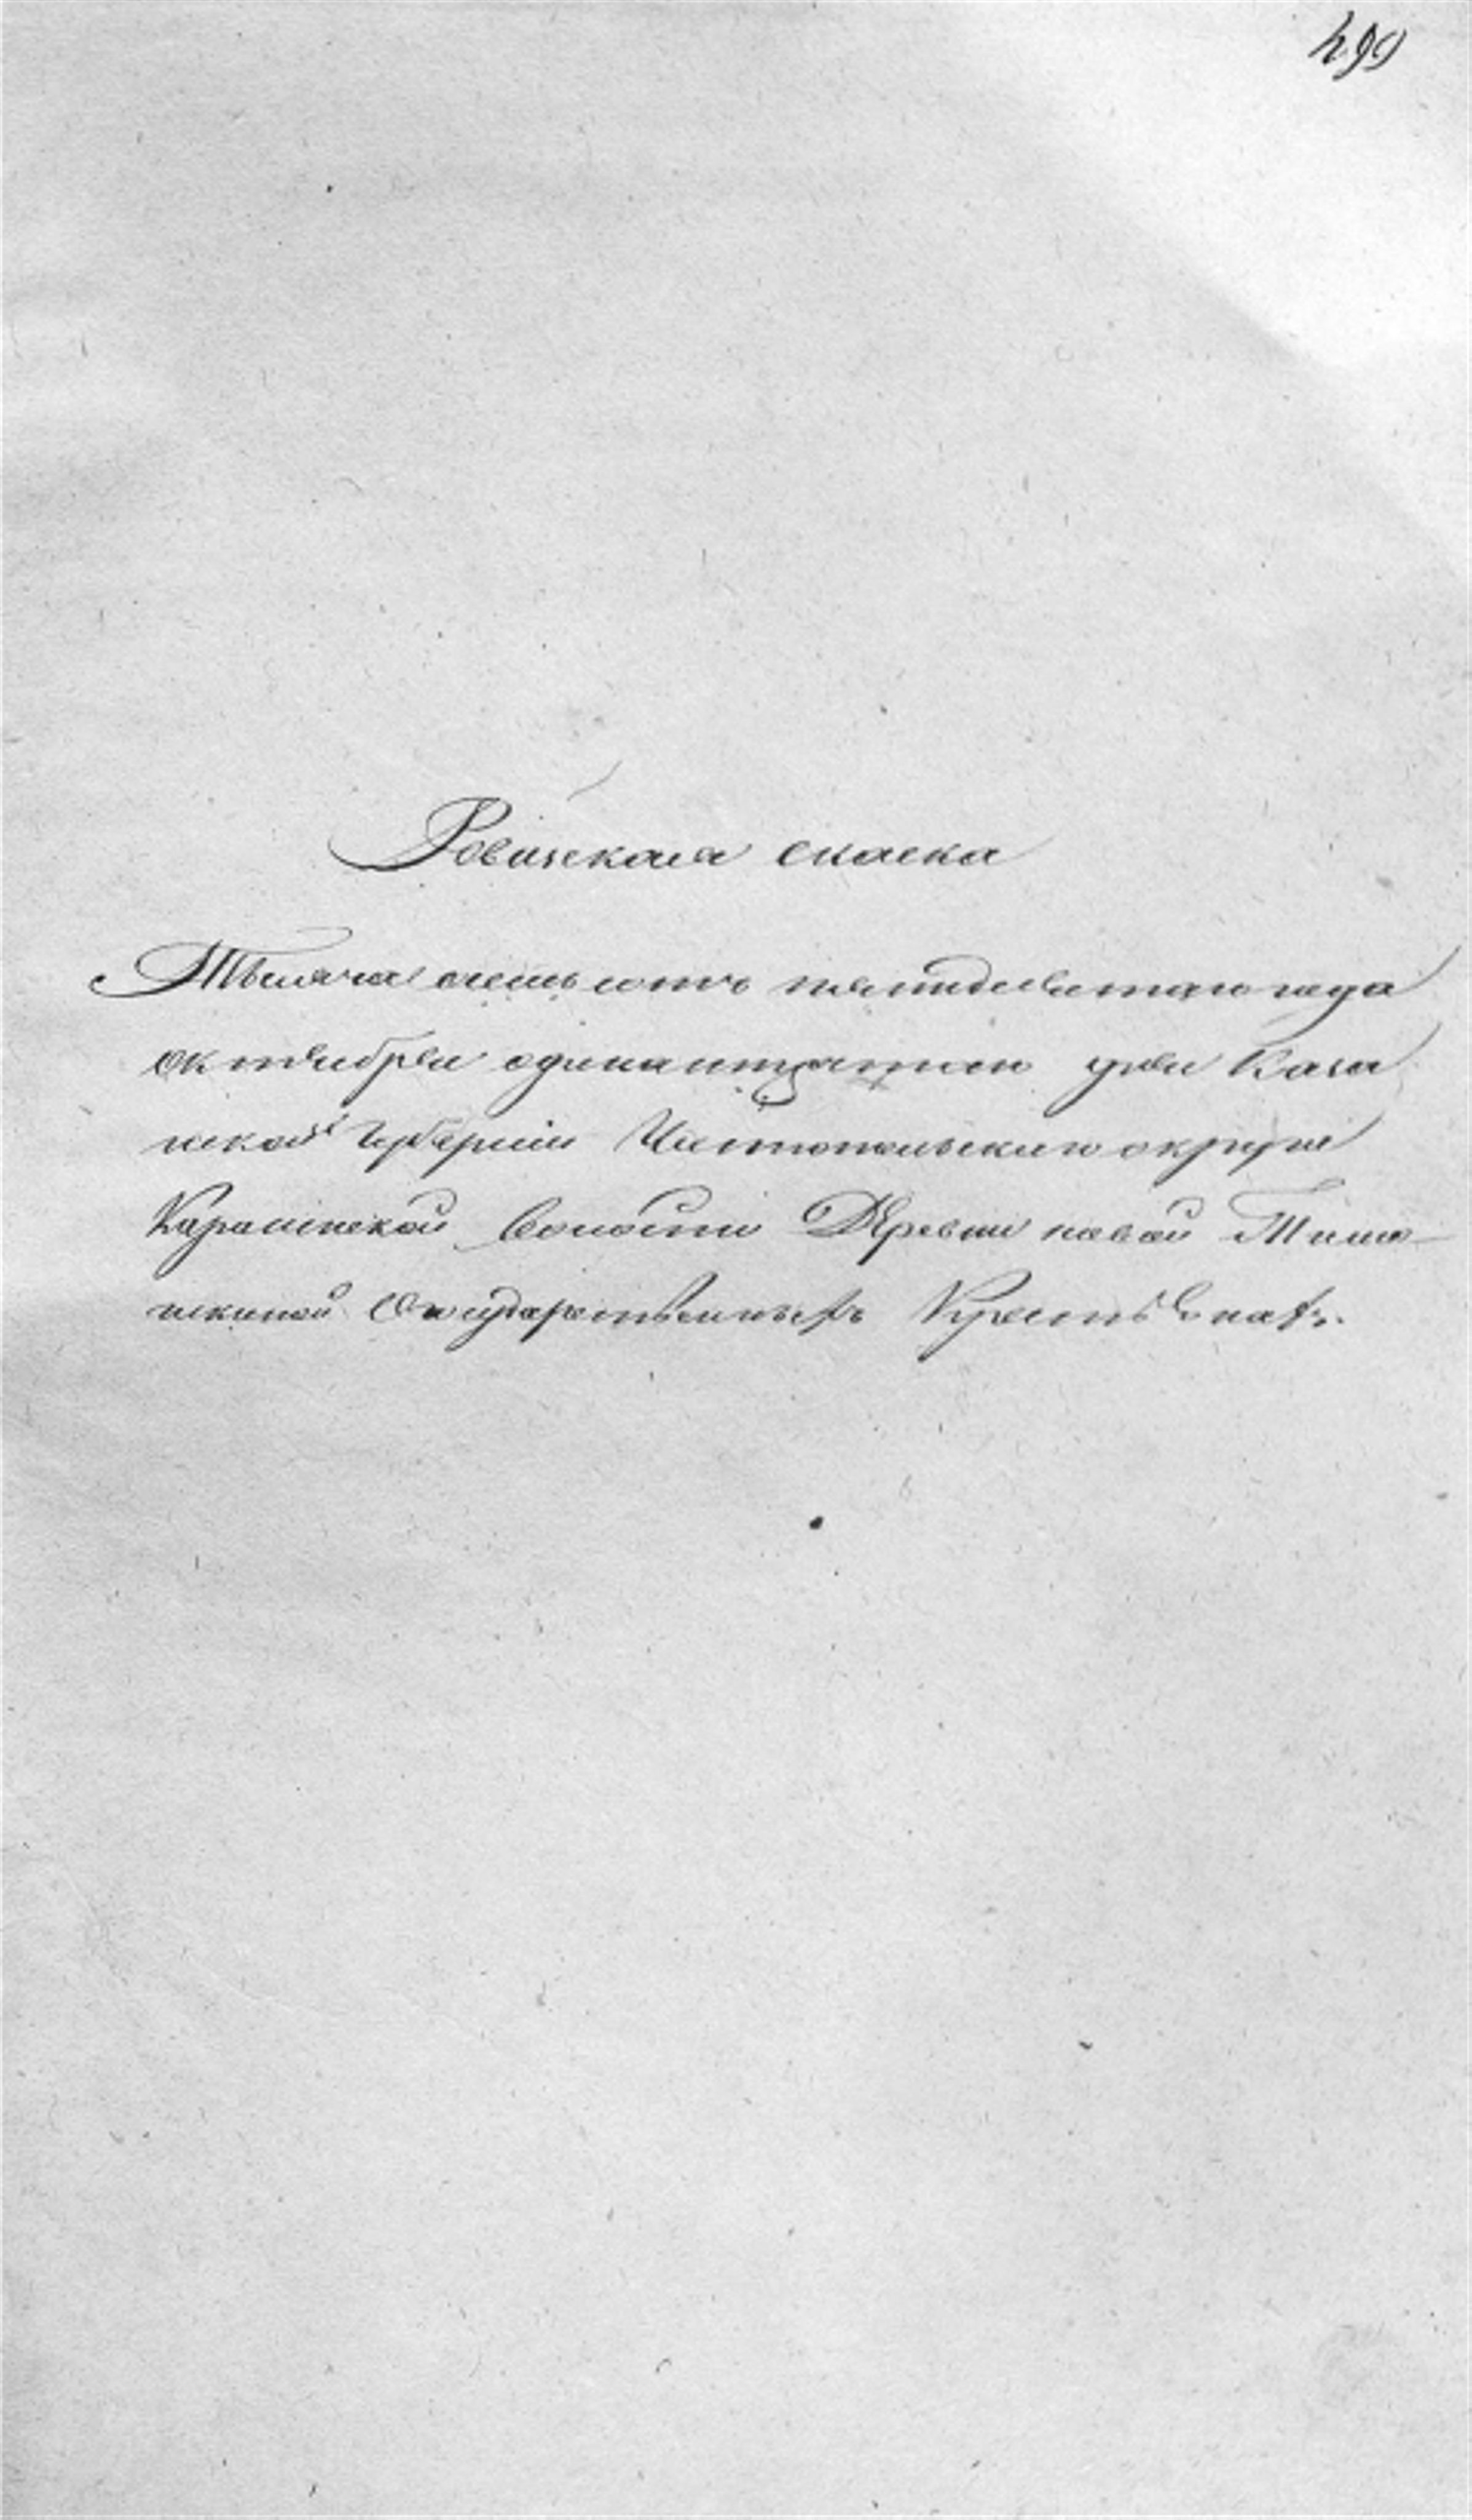 499
Ревизская скаска
Тысяча осемь сотъ пятидесятаго года
Октября одинадцатаго дня Казан
нской Губернии Чистопольскаго округа
волости Деревни новой
Государственныхъ Крестьянахъ.